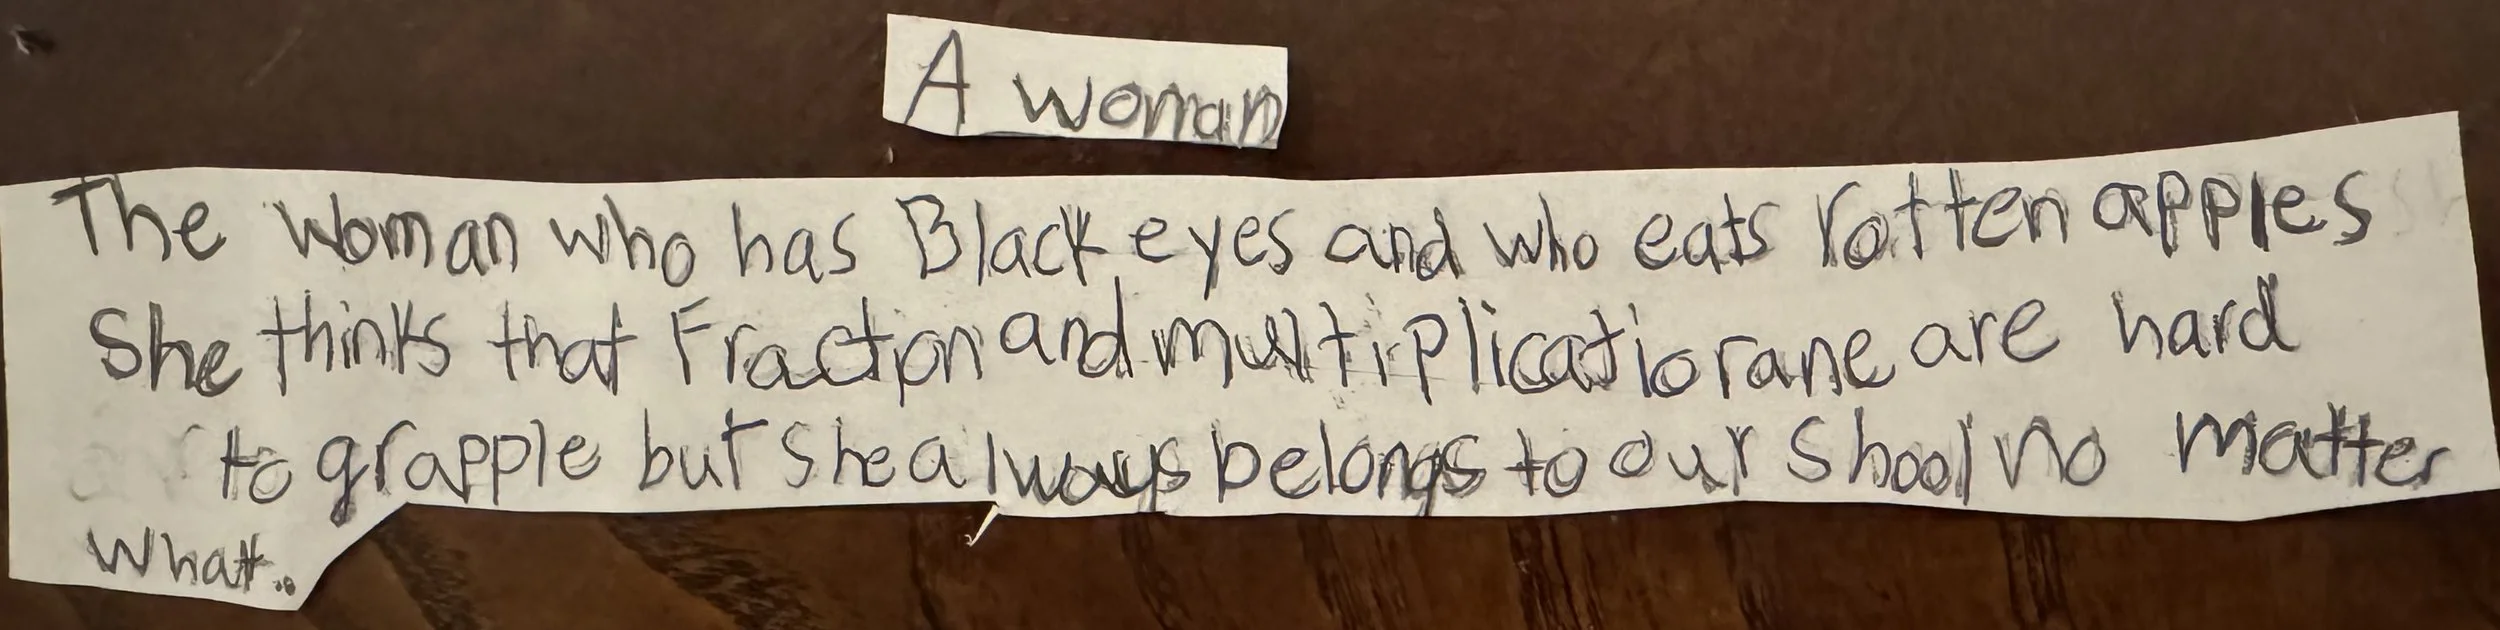 A woman
The Woman who has Black eyes and who eats rotten apples
She thinks that Fraction and multiplicatiorane are hard
to grapple but she always belongs to our shool no matter
what..